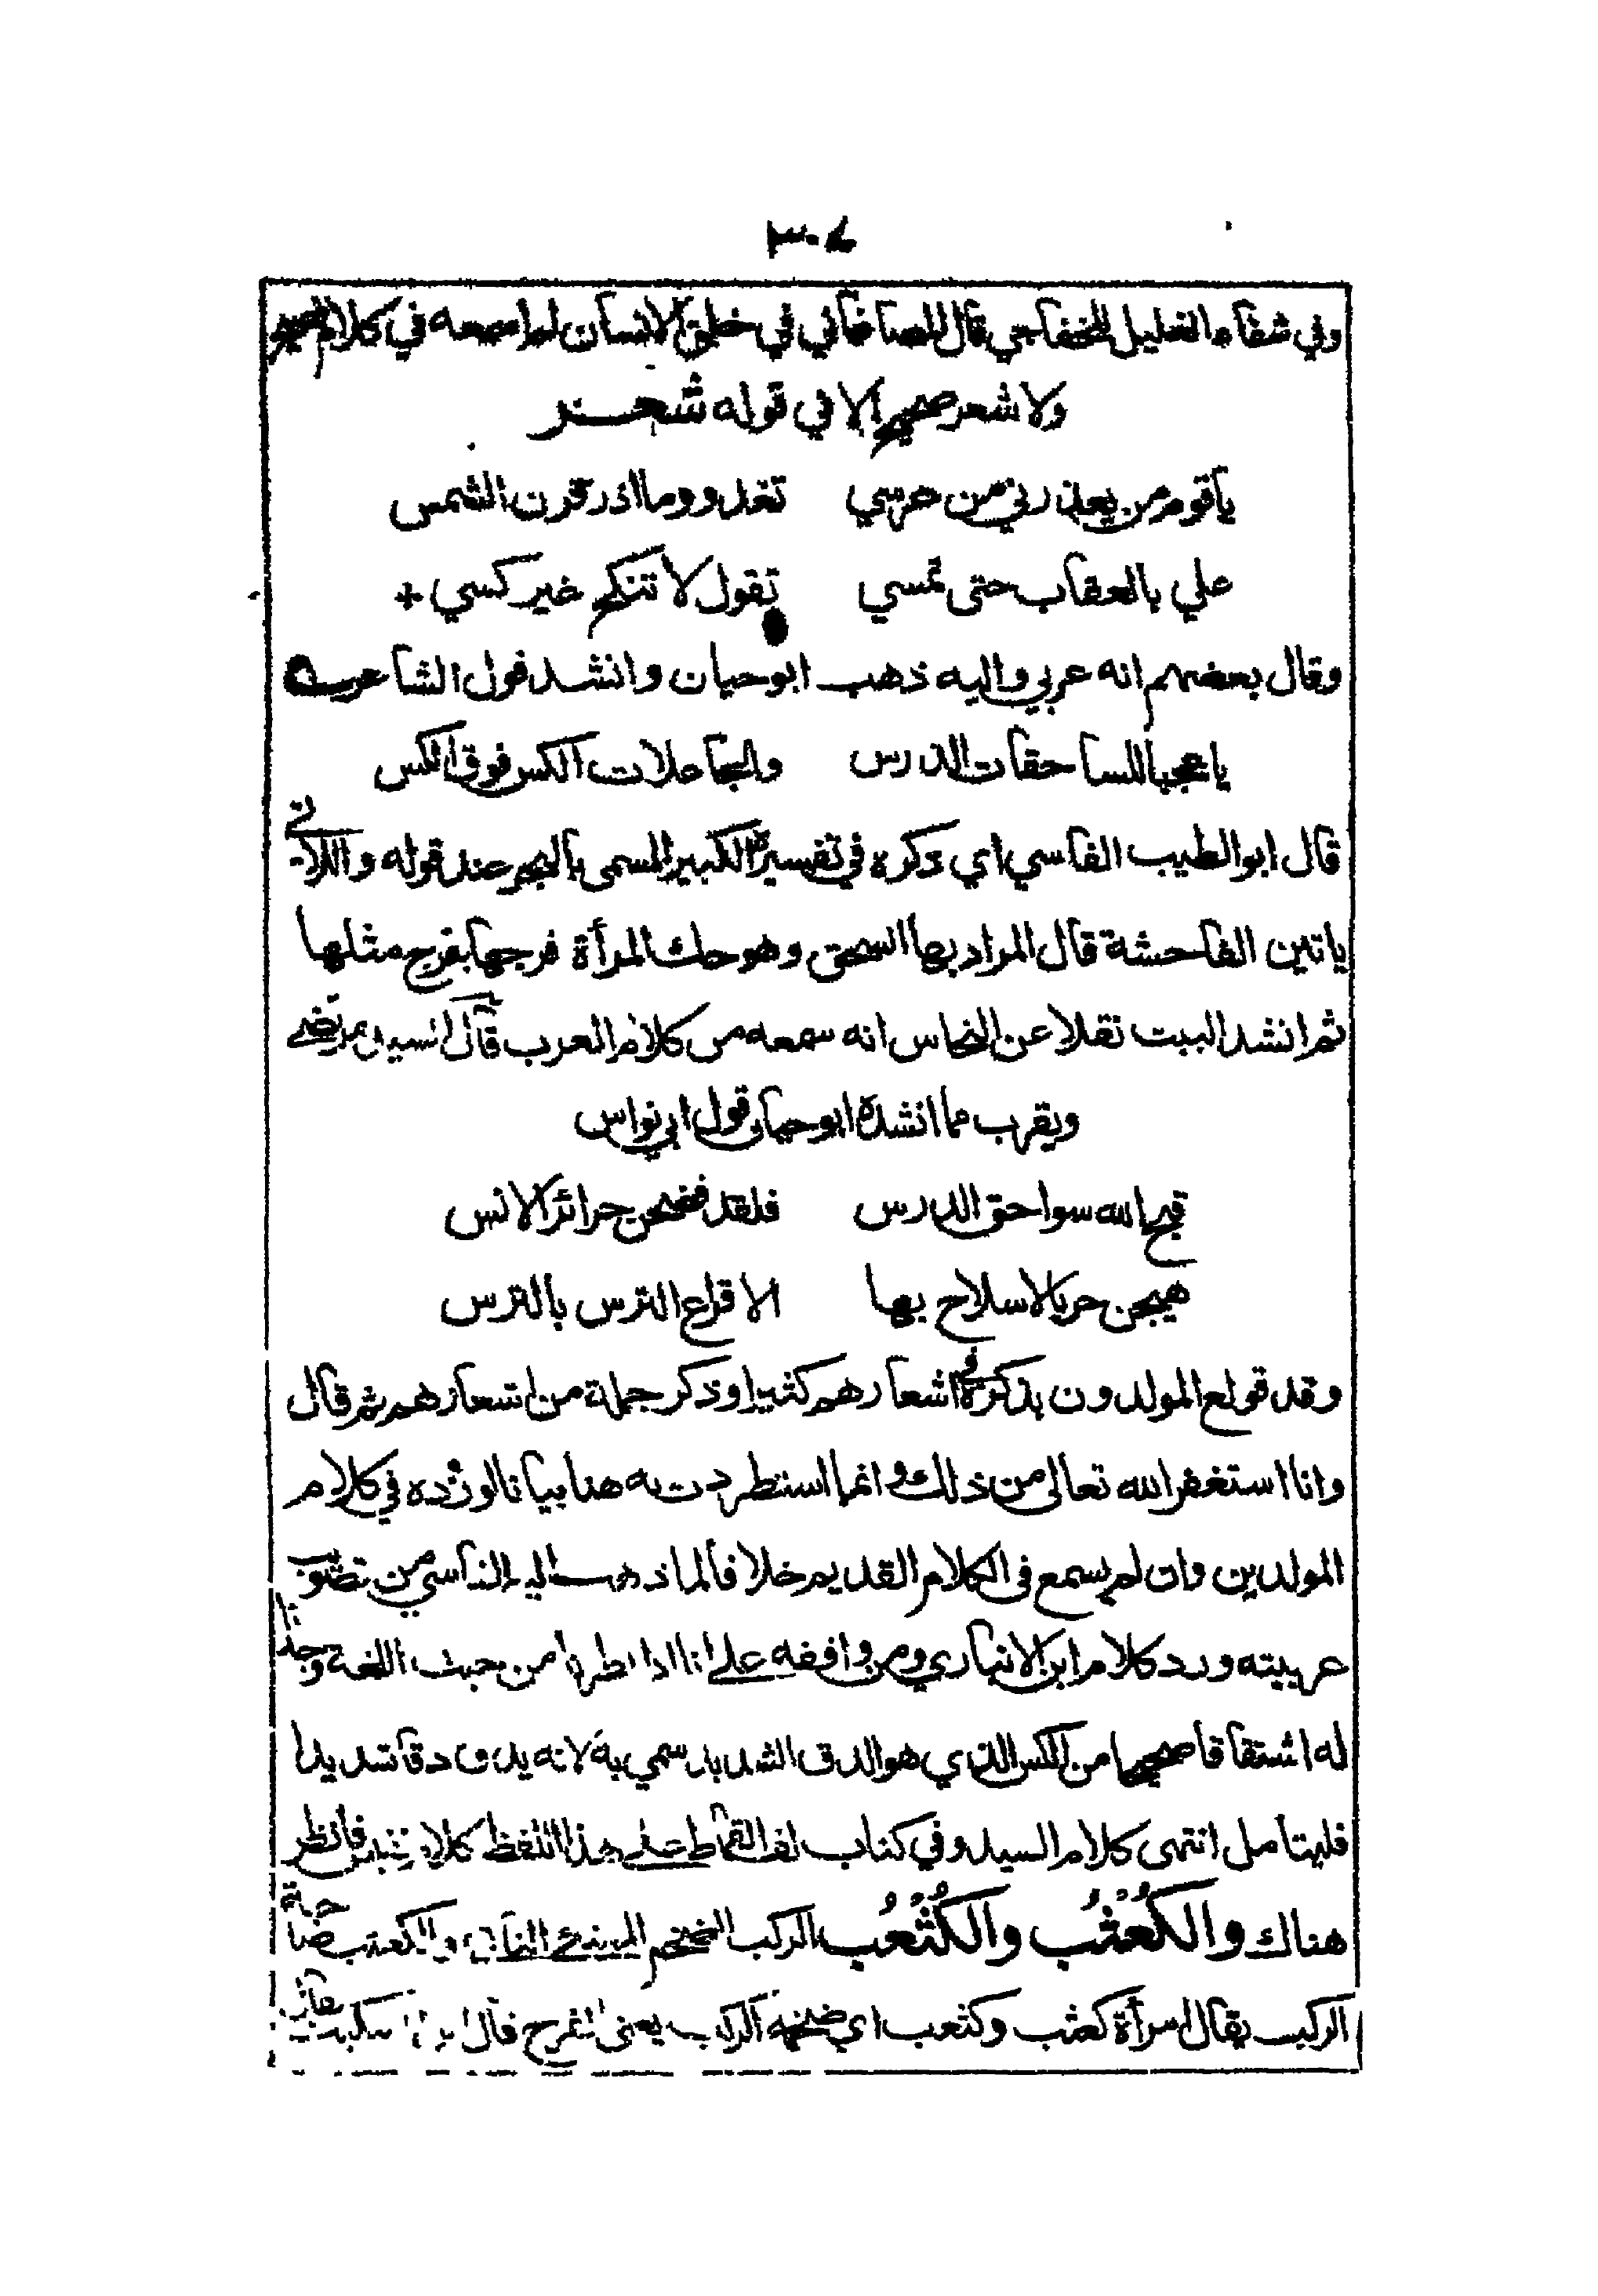 ٣٠٤
وفي شفاء الغليل للخفاجي قال الصاغاني في خلق الانسان لم اسمعه في كلام فصيح
ولا شعر صحيح الا في قوله شعر
ياقوم من يعذرني من عرسي تغدو وما اذر قرن الشمس
علي بالعقاب حتى تمسي تقول لا تنكح غير كسي +
وقال بعضهم انه عربي واليه ذهب ابو حيان وانشد قول الشاعر
يا عجبا للساحقات الدرس والجاعلات الكس فوق الكس
قال ابو الطيب الفاسي اي ذكره في تفسيره الكبير المسمى بالبحر عند قوله واللاتي
ياتين الفاحشة قال المراد بها السحق وهو حك المرأة فرجها بفرج مثلها
ثم انشد البيت نقلا عن النحاس انه سمعه من كلام العرب قال السيد مرتضى
ويقرب مما انشده ابو حيان قول ابي نواس
قبح الله سواحق الدرس فلقد فضحن حرائر الانس
هيجن حربا لا سلاح بها الا قراع الترس بالترس
وقد تولع المولدون بذكره في اشعارهم كثيرا وذكر جملة من اشعارهم ثم قال
وانا استغفر الله تعالى من ذلك وانما استطردت به هنا بيانا لوروده في كلام
المولدين وان لم يسمع في الكلام القديم خلافا لما ذهب اليه الفاسي من تصويب
عربيته ورد كلام ابن الانباري ومن وافقه على انا اذا نظرنا من حيث اللغة وجدنا
له اشتقاقا صحيحا من الكس الذي هو الدق الشديد سمي به لانه يدق دقا شديدا
فليتامل انتهى كلام السيد وفي كتاب لف القماط على هذا اللفظ كلام نفيس فانظر
هناك والكَعْثَب والكَثْعَب الركب الضخم الممتلئ الناتئ والكعثب صاحبة
الركب يقال امرأة كعثب وكثعب اي ضخمة الركب يعني الفرج قال